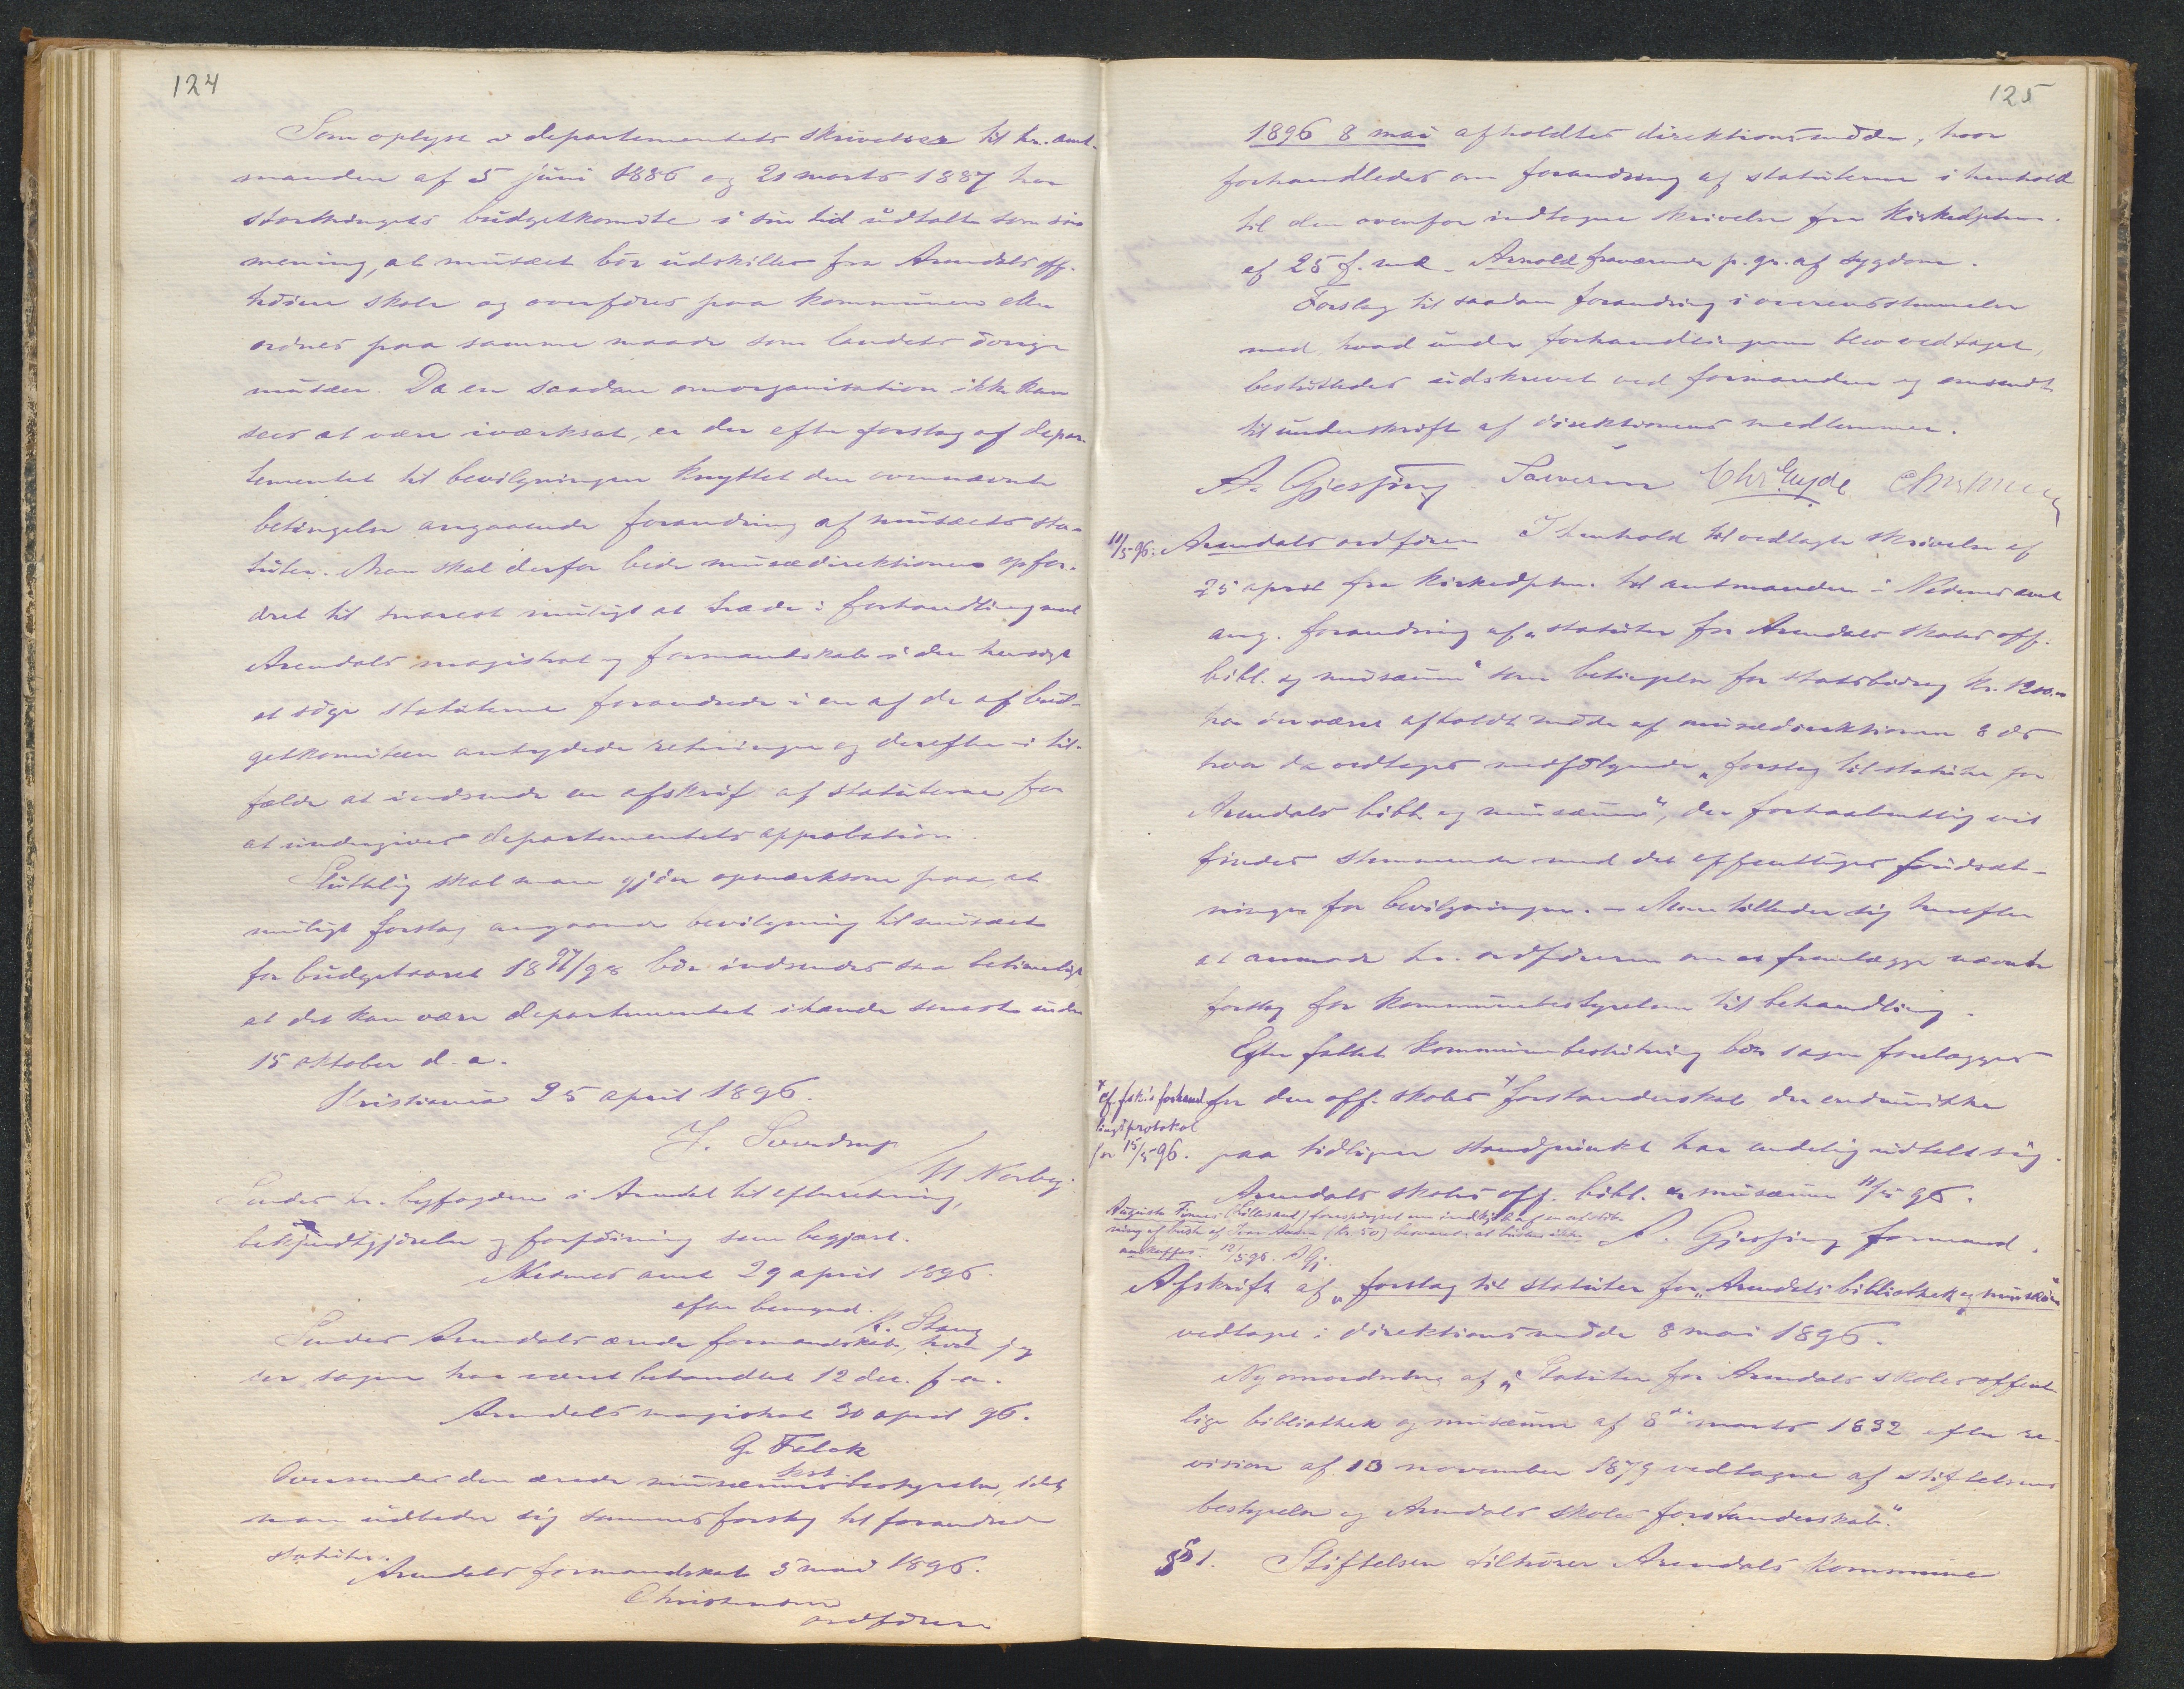 124
Som oplyst i departementets skrivelser til hr. amt-
manden af 5 juni 1886 og 21 marts 1887 har
storthingets budgetkomite i sin tid udtalt som sin
mening, at musæet bør udskilles fra Arendals off.
høiere skole og overføres paa kommunen eller
ordnes paa samme maade som landets øvrige
musæer. Da en saadan omorganisation ikke kan
sees at være iværksat, er der efter forslag af depar-
tementet til bevilgningen knyttet den ovennævnte
betingelse angaaende forandring af musæets sta-
tuter. Man skal derfor bede musædirektionen opfor-
dret til snarest muligt at træde i forhandling med
Arendals magistrat og formandskab i den hensigt
at søge statuterne forandrede i en af de af bud-
getkomiteen antydede retninger og derefter i til-
fælde at indsende en afskrift af statuterne for
at undergives departementets approbation.
Sluttelig skal man gjøre opmærksom paa, at
muligt forslag angaaende bevilgning til musæet
for budgetaaret 1897/98 bør indsendes saa betimeligt
at det kan være departementet ihænde senest inden
15 oktober d. a.
Kristiania 25 april 1896.
J. Sverdrup
M Norby.
Sendes hr. byfogden i Arendal til efterretning,
bekjendtgjørelse og forføining som begjært.
Nedenes amt 29 april 1896.
efter bemynd.
K. Stang
Sendes Arendals ærede formandskab, hvor jeg
ser sagen har været behandlet 12 dec. f. a.
Arendals magistrat 30 april 96.
G. Falck
kst.
Oversendes den ærede musæumsbestyrelse, idet
man udbeder sig sammes forslag til forandrede
statuter.
Arendals formandskab 5 mai 1896.
Christensen
ordfører
125
1896 8 mai afholdtes direktionsmøde, hvor
forhandledes om forandring af statuterne i henhold
til den ovenfor indtagne skrivelse fra Kirkedptem.
af 25 f. md. Arnold fraværende p. gr. af sygdom.
Forslag til saadan forandring i overensstemmelse
med, hvad under forhandlingerne blev vedtaget,
besluttedes udskrevet ved formanden og omsendt
til underskrift af direktionens medlemmer.
A. Gjessing Sørensen Chr. Eyde
11/5-96. Arendals ordfører I henhold til vedlagte skrivelse af
25 april fra kirkedptem. til amtmanden i Nedenes amt
ang. forandring af „statuter for Arendals skoles off.
bibl. og musæum" som betingelse for statsbidrag kr. 1200.00
har der været afholdt møde af musædirektionen 8 ds
hvor da vedtoges medfølgende „forslag til statuter for
Arendals bibl. og musæum", der forhaabentlig vil
findes stemmende med det offentliges forudsæt-
ninger for bevilgningen. – Man tillader sig herefter
at anmode hr. ordføreren om at fremlægge nævnte
forslag for kommunebestyrelsen til behandling.
Efter fattet kommunebeslutning bør sagen forelægges
* cf. f.sk.s forhand-
lingsprotokol
for 15/5-96.
for den off. skoles * forstanderskab der endnu ikke
paa tidligere standpunkt har endelig udtalt sig.
Arendals skoles off. bibl. og musæum 11/5 96.
A. Gjessing formand.
Augusta Finne (Lillesand) forespørgsel om indkjøb af en afstøb-
ning af buste af Ivar Aasen (kr. 50) besvaret: at busten ikke
anskaffes. 12/5 96. AGj.
Afskrift af „forslag til statuter for „Arendals bibliothek og musæum"
vedtaget i direktionsmøde 8 mai 1896.
Ny omordning af „Statuter for Arendals skoles offent-
lige bibliothek og musæum af 8de marts 1832 efter re-
vision af 10 november 1879 vedtagne af stiftelsens
bestyrelse og Arendals skoles forstanderskab".
§ 1. Stiftelsen tilhører Arendals kommune